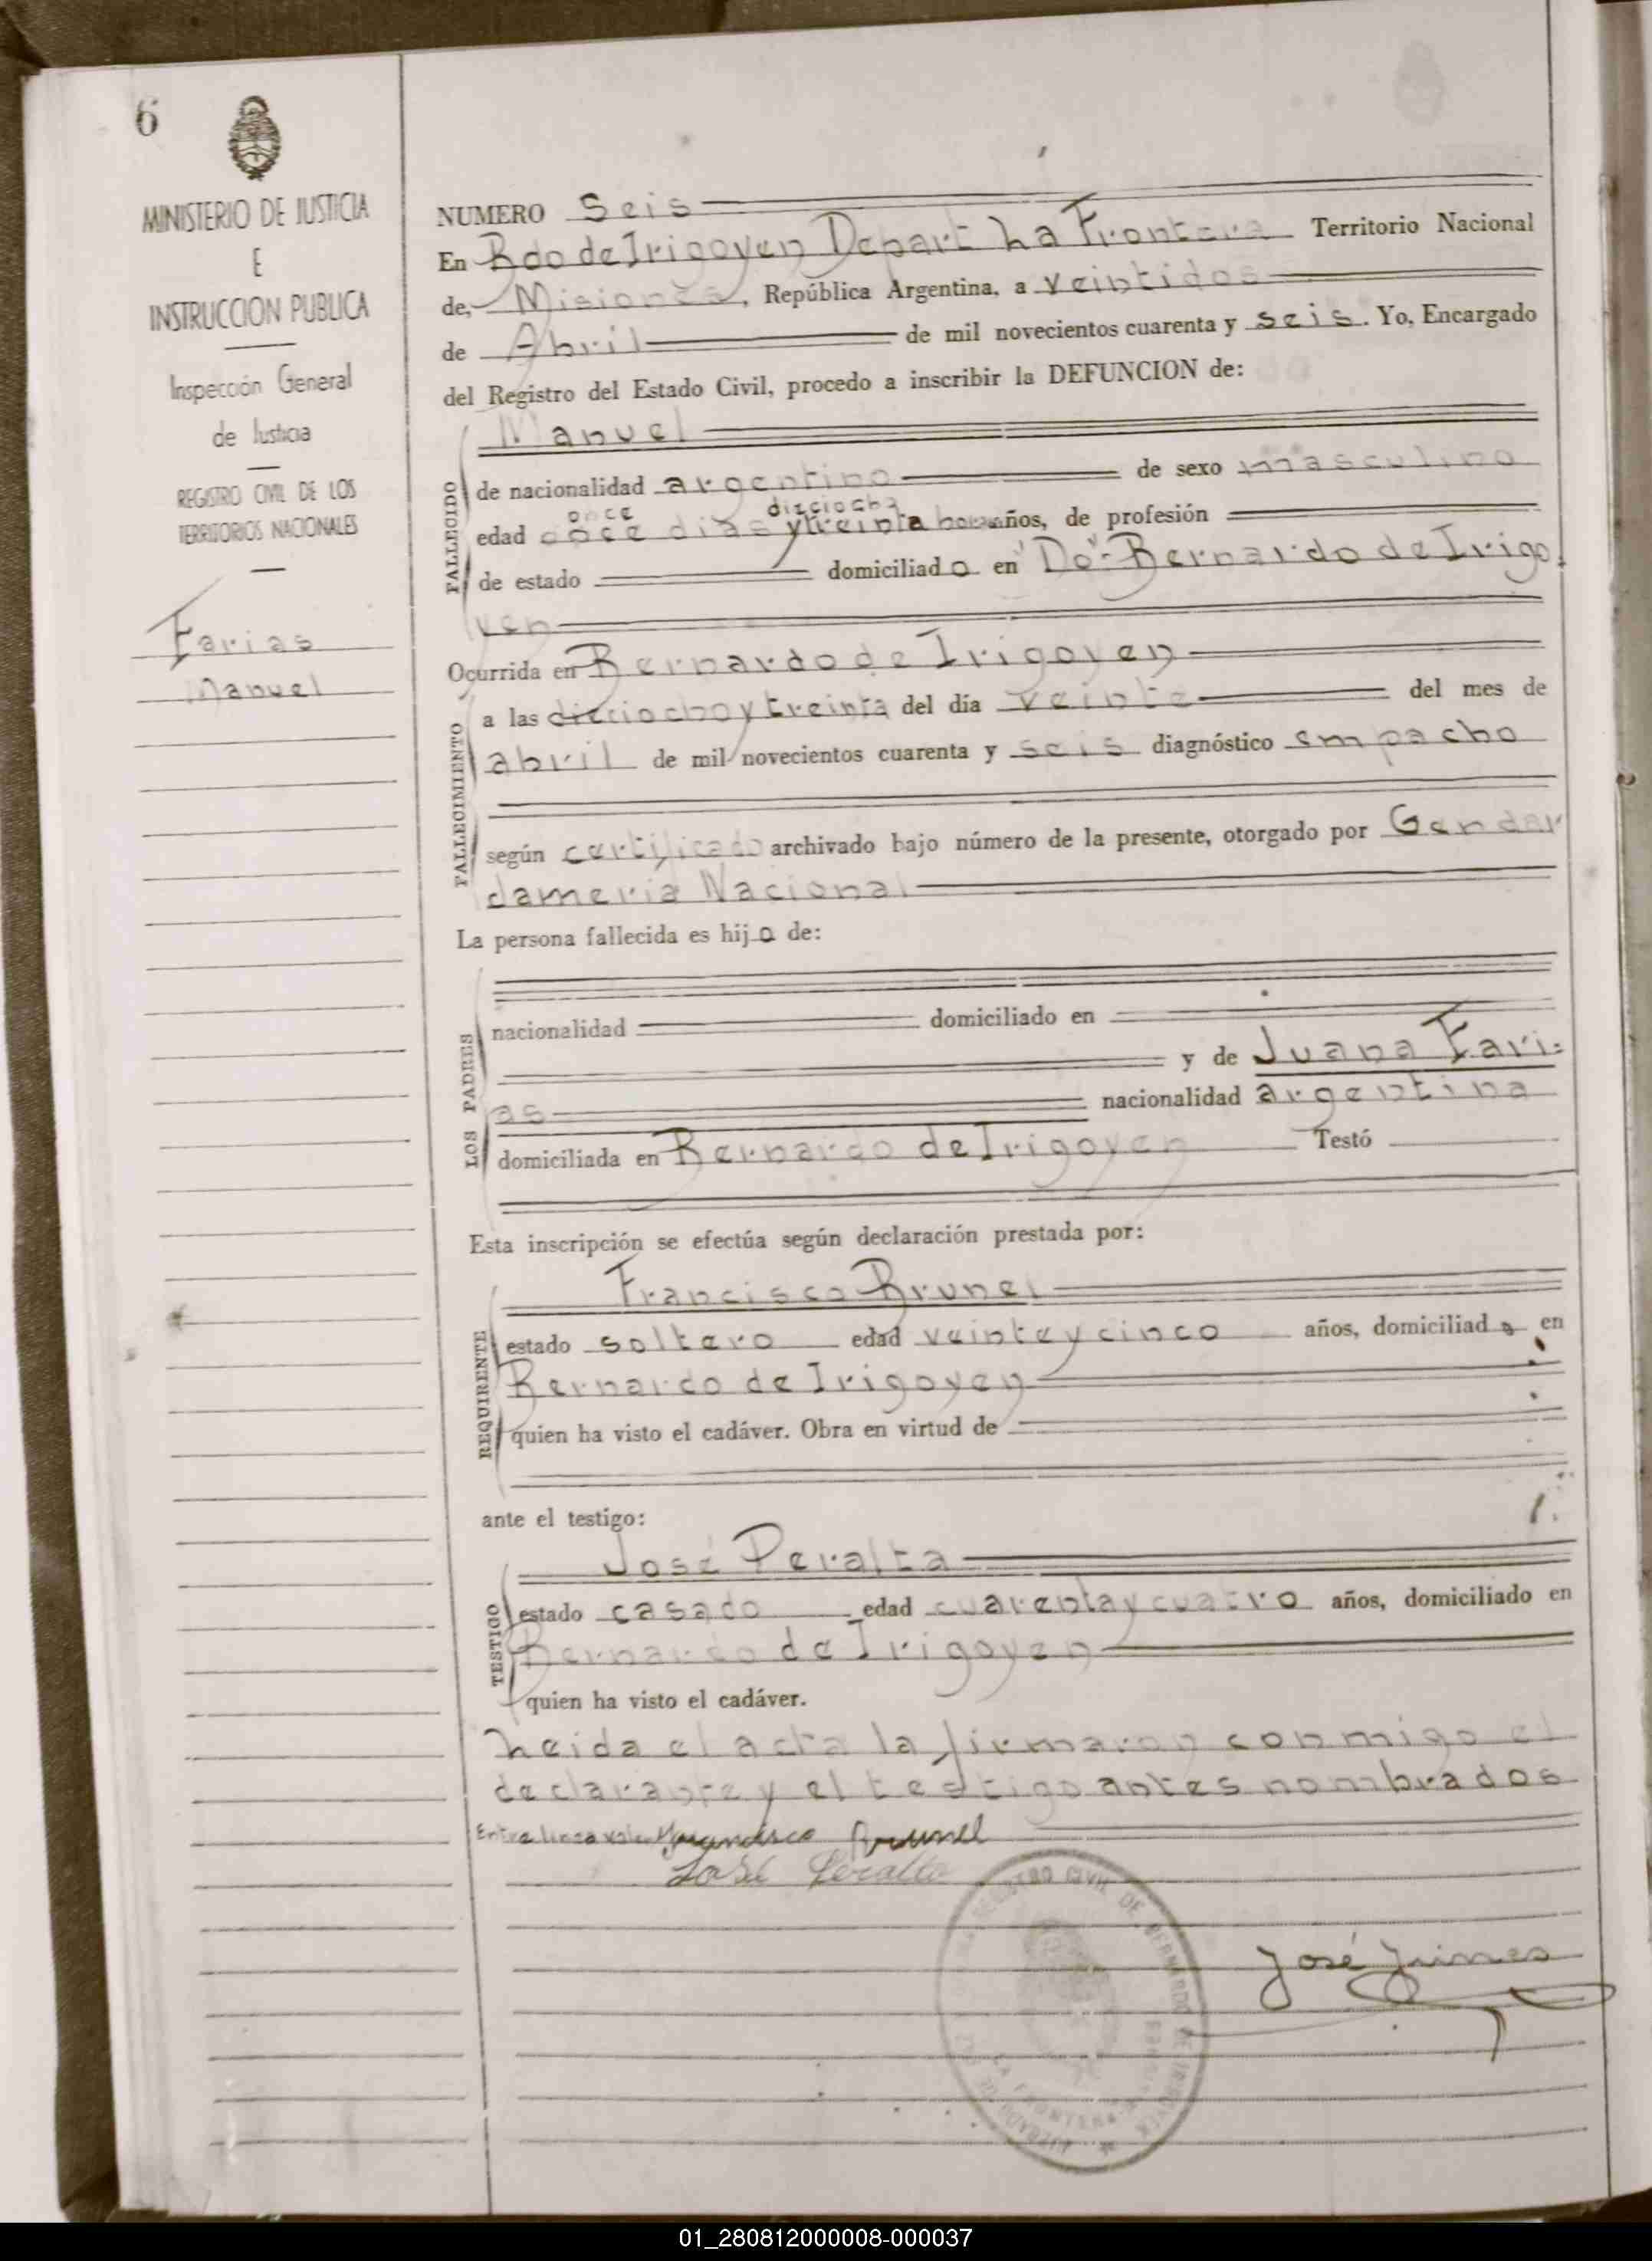 6
MINISTERIO DE JUSTICIA
E
INSTRUCCION PUBLICA
Inspección General
de Justicia
REGISTRO CIVIL DE LOS
TERRITORIOS NACIONALES
Farias
Manuel
NUMERO Seis
En Bdo de Irigoyen Depart La Frontera Territorio Nacional
de, Misiones, República Argentina, a veintidos
de Abril de mil novecientos cuarenta y seis. Yo, Encargado
del Registro del Estado Civil, procedo a inscribir la DEFUNCION de:
FALLECIDO
Manuel
de nacionalidad argentino de sexo masculino
once dieciocho
edad once dias y treinta horas años, de profesión
de estado domiciliado en "Do"- Bernardo de Irigo
yen
Ocurrida en Bernardo de Irigoyen
FALLECIMIENTO
a las dieciocho y treinta del día veinte del mes de
abril de mil novecientos cuarenta y seis diagnóstico empacho
según certificado archivado bajo número de la presente, otorgado por Gendar
dameria Nacional
La persona fallecida es hijo de:
LOS PADRES
nacionalidad domiciliado en
y de Juana Fari-
as nacionalidad argentina
domiciliada en Bernardo de Irigoyen Testó
Esta inscripción se efectúa según declaración prestada por:
REQUIRENTE
Francisco Brunel
estado soltero edad veinte y cinco años, domiciliado en
Bernardo de Irigoyen
quien ha visto el cadáver. Obra en virtud de
ante el testigo:
TESTIGO
José Peralta
estado casado edad cuarenta y cuatro años, domiciliado en
Bernardo de Irigoyen
quien ha visto el cadáver.
Leida el acta la firmaron conmigo el
declarante y el testigo antes nombrados
Entre linea vale Francisco Brunel
José Peralta
REGISTRO CIVIL DE BERNARDO DE IRIGOYEN
LA FRONTERA
José
01_280812000008-000037